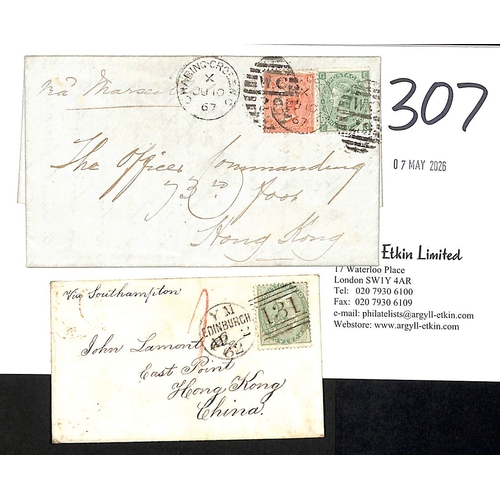 Via Marseilles
CHARING-CROSS
X
JU 10
67
W.C
307
07 MAY 2026
The Officer Commanding
73rd Foot
Hong Kong
Etkin Limited
17 Waterloo Place
London SW1Y 4AR
Tel: 020 7930 6100
Fax: 020 7930 6109
e-mail: philatelists@argyll-etkin.com
Webstore: www.argyll-etkin.com
Via Southampton
1
Y M
EDINBURGH
AP 2
62
131
John Lamont Esq
East Point
Hong Kong
China.